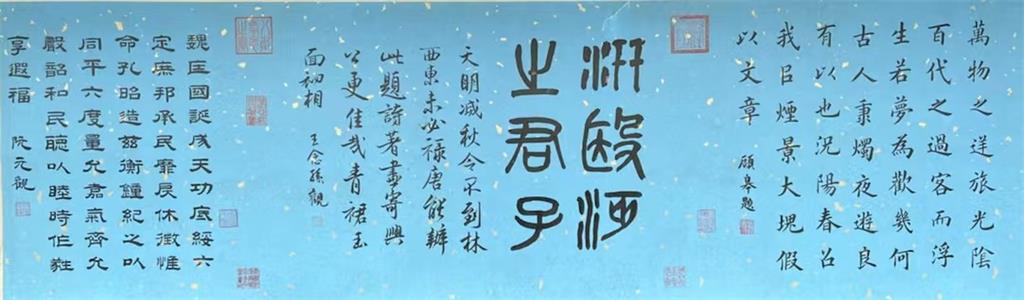 萬物之逆旅光陰
百代之過客而浮
生若夢為歡幾何
古人秉燭夜遊良
有以也況陽春召
我㠯煙景大塊假
以文章 顧皋題
汧殹沔
之君子
天明減秋令不到林
西東未必祿唐能辨
此題詩著畫寄興
更佳哉青裙玉
面初相 王念孫觀
魏匡國誕成天功底綏六
定庶邦承民靡戾休徵惟
命孔昭造茲衡鐘紀之以
同平六度量允嘉氣齊允
嚴韶和民聽以睦時作雍
享遐福 阮元觀